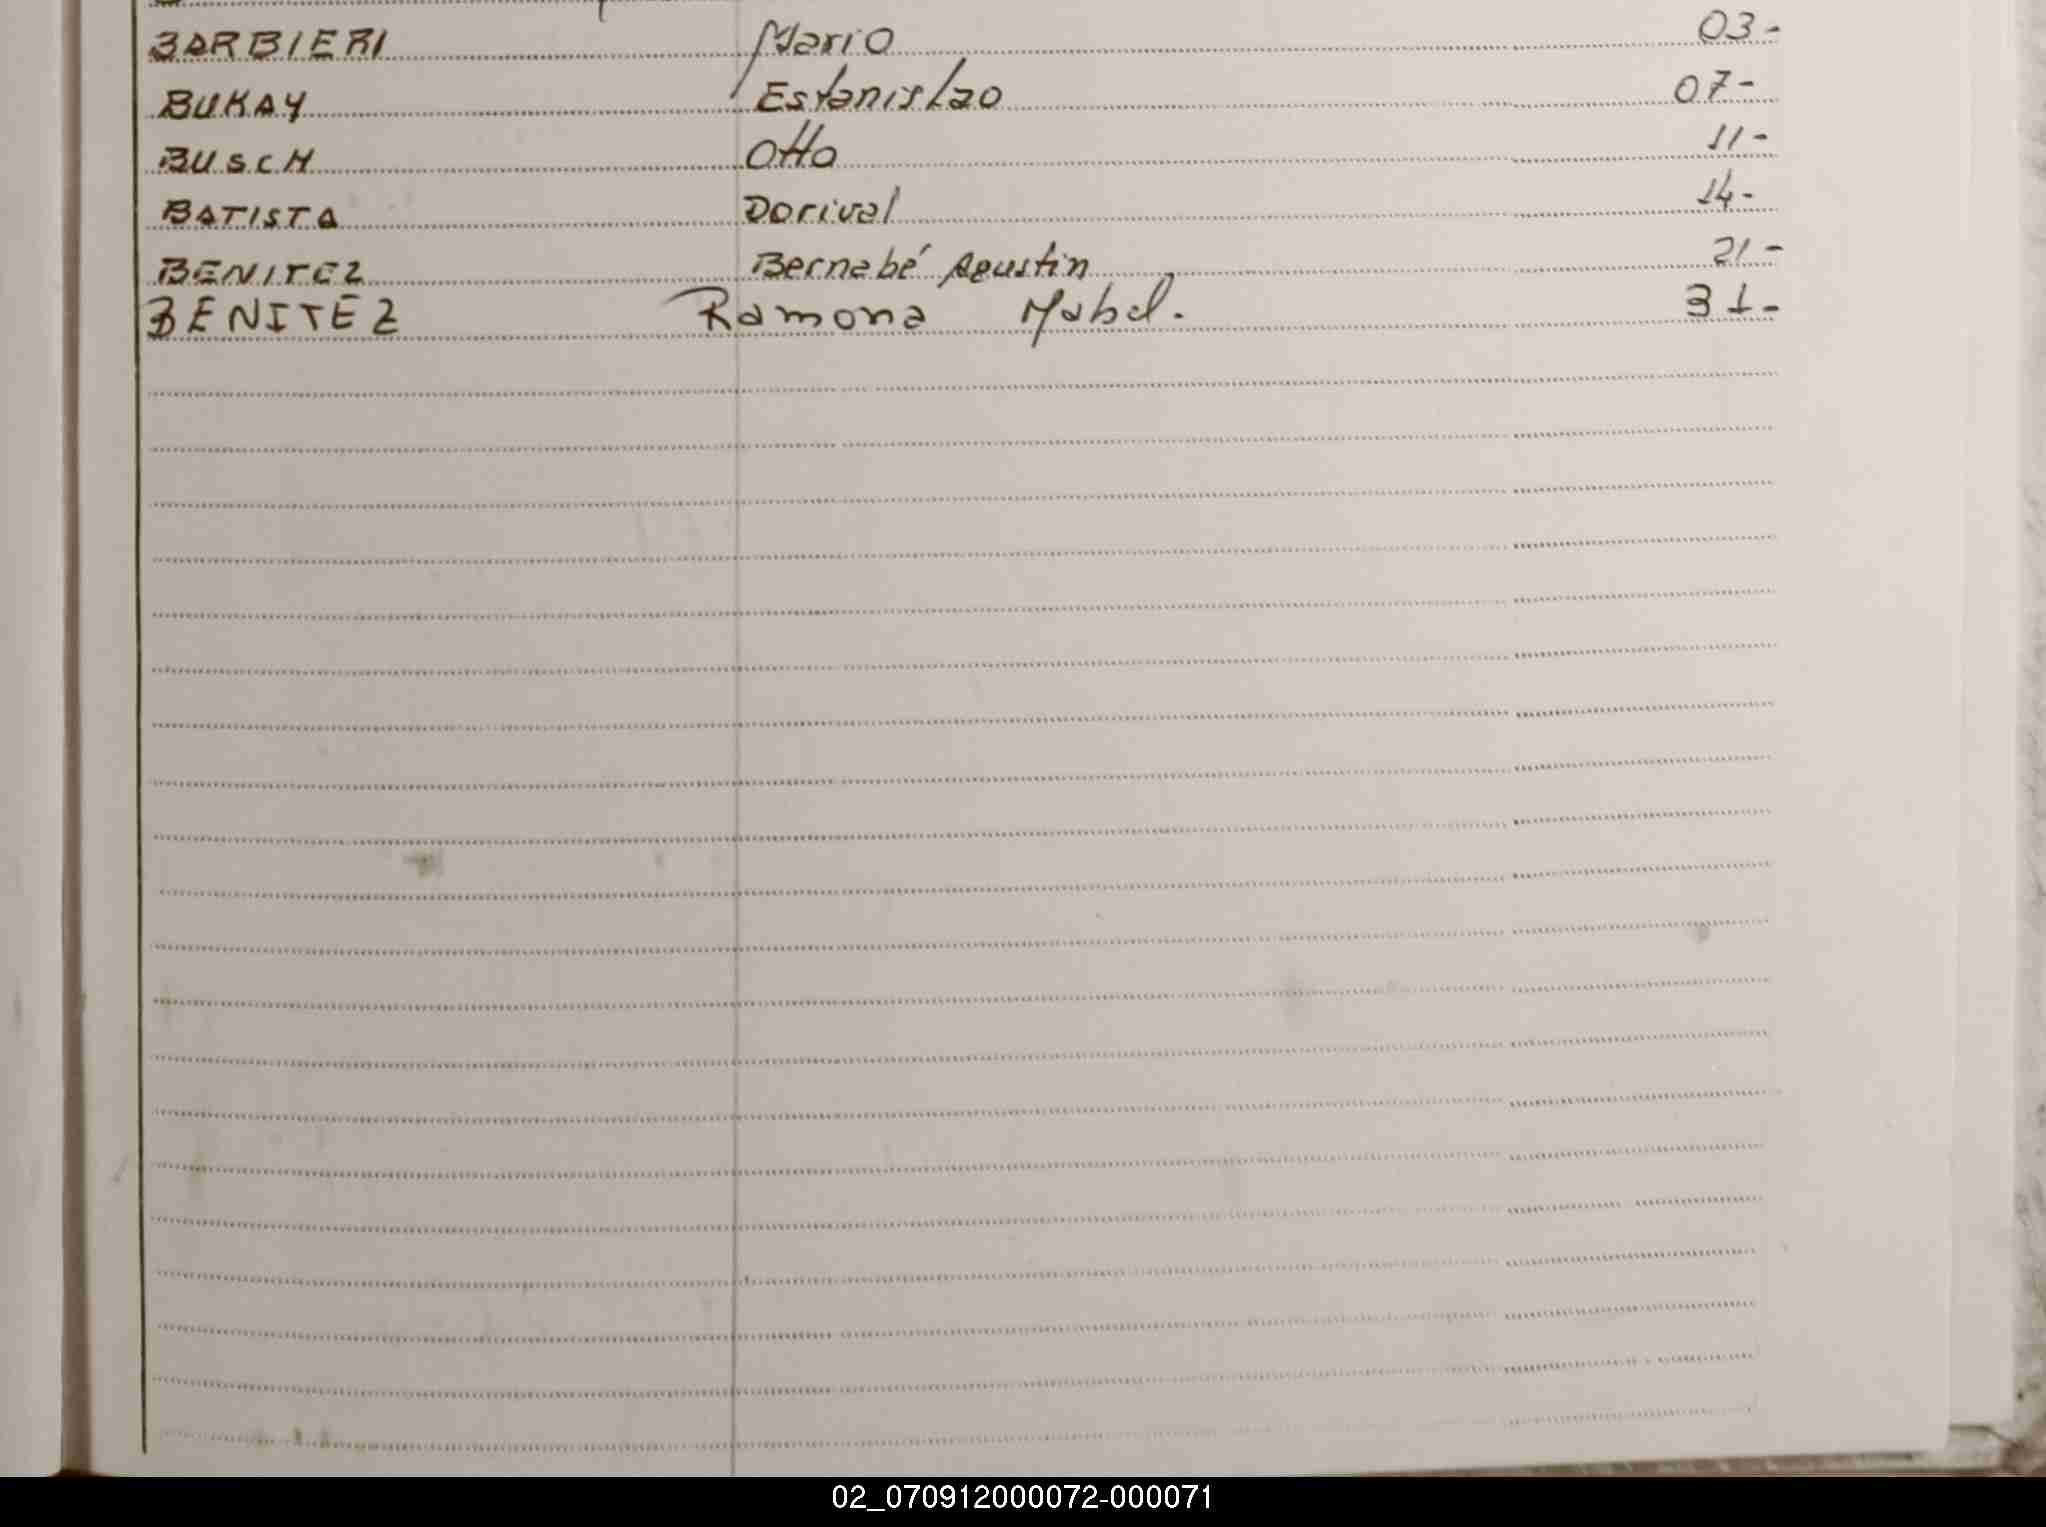 BARBIERI Mario 03-
BUKAY Estanislao 07-
BUSCH Otto 11-
BATISTA Dorival 14-
BENITEZ Bernabé Agustin 21-
BENITEZ Ramona Mabel. 31-
02_070912000072-000071